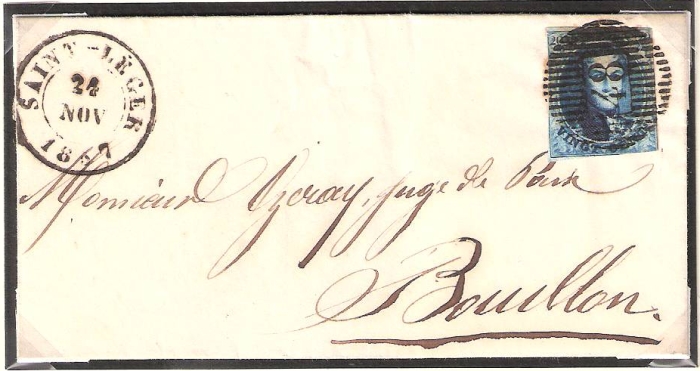 SAINT-LÉGER
24
NOV
1857
Monsieur Ozeray, juge de Paix
Bouillon.